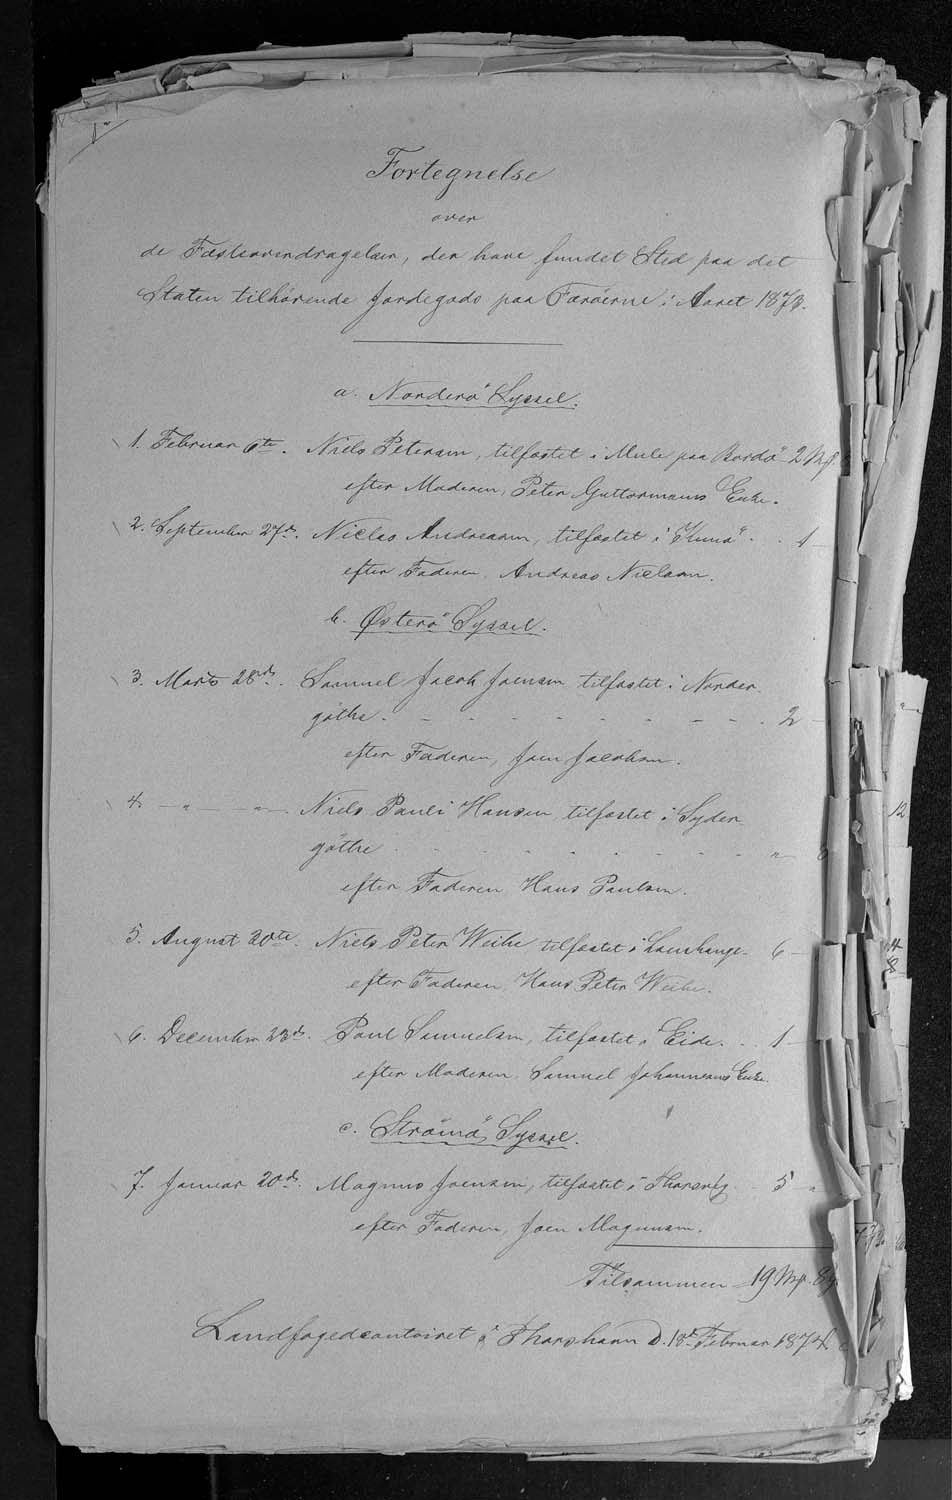 Fortegnelse
over
de Fæsteovendragelser, der have fundet Sted paa det
Staten tilhörende Jordegods paa Færöerne i Aaret 1873.
a. Norderö Syssel.
1. Februar 6te. Niels Petersen, tilfæstet i Mule paa Bordö 2 Mk.
efter Moderen, Peter Guttormsens Enke.
2. September 27de. Niclas Andreasen, tilfæstet i Kunö 1
efter Faderen, Andreas Nielsen.
b. Österö Syssel.
3. Marts 28de. Samuel Jacob Joensen tilfæstet i Norder
göthe 2
efter Faderen, Joen Jacobsen.
4. — " — " — Niels Pauli Hansen, tilfæstet i Syder
göthe " — 8
efter Faderen Hans Paulsen.
5. August 30te. Niels Peter Weihe tilfæstet i Lamhauge 6
efter Faderen, Hans Peter Weihe.
6. December 23de. Poul Samuelsen, tilfæstet i Eide 1
efter Moderen, Samuel Johannesens Enke.
c. Strömö Syssel.
7. Januar 20de. Magnus Joensen, tilfæstet i Thorsvig 5 "
efter Faderen, Joen Magnussen.
Tilsammen 19 Mk. 8
Landfogedcontoiret i Thorshavn D. 18de Februar 1874.
12